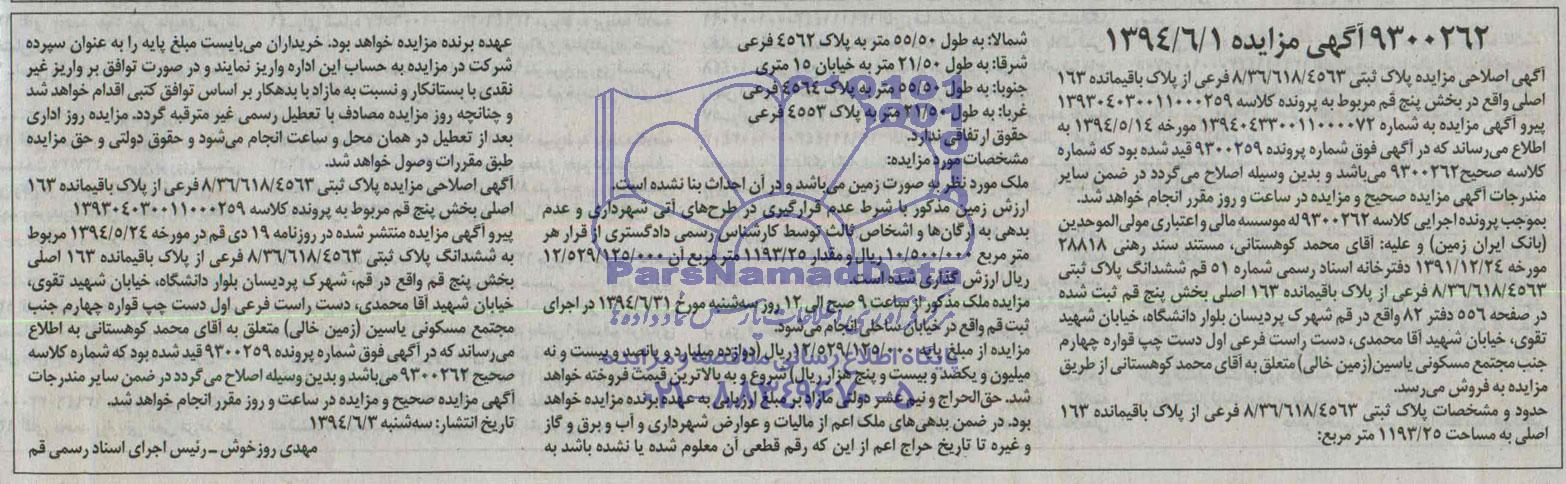 ۹۳۰۰۲۶۲ آگهی مزایده ۱۳۹۴/۶/۱
آگهی اصلاحی مزایده پلاک ثبتی ۸/۳۶/۶۱۸/۴۵۶۳ فرعی از پلاک باقیمانده ۱۶۳
اصلی واقع در بخش پنج قم مربوط به پرونده کلاسه ۱۳۹۳۰۴۰۳۰۰۱۱۰۰۰۲۵۹
پیرو آگهی مزایده به شماره ۱۳۹۴۰۴۳۳۰۰۱۱۰۰۰۰۷۲ مورخه ۱۳۹۴/۵/۱۴ به
اطلاع می‌رساند که در آگهی فوق شماره پرونده ۹۳۰۰۲۵۹ قید شده بود که شماره
کلاسه صحیح ۹۳۰۰۲۶۲ می‌باشد و بدین وسیله اصلاح می‌گردد در ضمن سایر
مندرجات آگهی مزایده صحیح و مزایده در ساعت و روز مقرر انجام خواهد شد.
بموجب پرونده اجرایی کلاسه ۹۳۰۰۲۶۲ له موسسه مالی و اعتباری مولی الموحدین
(بانک ایران زمین) و علیه: آقای محمد کوهستانی، مستند سند رهنی ۲۸۸۱۸
مورخه ۱۳۹۱/۱۲/۲۴ دفترخانه اسناد رسمی شماره ۵۱ قم ششدانگ پلاک ثبتی
۸/۳۶/۶۱۸/۴۵۶۳ فرعی از پلاک باقیمانده ۱۶۳ اصلی بخش پنج قم ثبت شده
در صفحه ۵۵۶ دفتر ۸۲ واقع در قم شهرک پردیسان بلوار دانشگاه، خیابان شهید
تقوی، خیابان شهید آقا محمدی، دست راست فرعی اول دست چپ قواره چهارم
جنب مجتمع مسکونی یاسین (زمین خالی) متعلق به آقای محمد کوهستانی از طریق
مزایده به فروش می‌رسد.
حدود و مشخصات پلاک ثبتی ۸/۳۶/۶۱۸/۴۵۶۳ فرعی از پلاک باقیمانده ۱۶۳
اصلی به مساحت ۱۱۹۳/۲۵ متر مربع:
شمالا: به طول ۵۵/۵۰ متر به پلاک ۴۵۶۲ فرعی
شرقا: به طول ۲۱/۵۰ متر به خیابان ۱۵ متری
جنوبا: به طول ۵۵/۵۰ متر به پلاک ۴۵۶۴ فرعی
غربا: به طول ۲۱/۵۰ متر به پلاک ۴۵۵۳ فرعی
حقوق ارتفاقی ندارد.
مشخصات مورد مزایده:
ملک مورد نظر به صورت زمین می‌باشد و در آن احداث بنا نشده است.
ارزش زمین مذکور با شرط عدم قرارگیری در طرح‌های آتی شهرداری و عدم
بدهی به ارگان‌ها و اشخاص ثالث توسط کارشناس رسمی دادگستری از قرار هر
متر مربع ۱۰/۵۰۰/۰۰۰ ریال و مقدار ۱۱۹۳/۲۵ متر مربع آن ۱۲/۵۲۹/۱۲۵/۰۰۰
ریال ارزش گذاری شده است.
مزایده ملک مذکور از ساعت ۹ صبح الی ۱۲ روز سه‌شنبه مورخ ۱۳۹۴/۶/۳۱ در اجرای
ثبت قم واقع در خیابان ساحلی انجام می‌شود.
مزایده از مبلغ پایه ۱۲/۵۲۹/۱۲۵/۰۰۰ ریال (دوازده میلیارد و پانصد و بیست و نه
میلیون و یکصد و بیست و پنج هزار ریال) شروع و به بالاترین قیمت فروخته خواهد
شد. حق‌الحراج و نیم عشر دولتی مازاد بر مبلغ ارزیابی به عهده برنده مزایده خواهد
بود. در ضمن بدهی‌های ملک اعم از مالیات و عوارض شهرداری و آب و برق و گاز
و غیره تا تاریخ حراج اعم از این که رقم قطعی آن معلوم شده یا نشده باشد به
عهده برنده مزایده خواهد بود. خریداران می‌بایست مبلغ پایه را به عنوان سپرده
شرکت در مزایده به حساب این اداره واریز نمایند و در صورت توافق بر واریز غیر
نقدی با بستانکار و نسبت به مازاد با بدهکار بر اساس توافق کتبی اقدام خواهد شد
و چنانچه روز مزایده مصادف با تعطیل رسمی غیر مترقبه گردد. مزایده روز اداری
بعد از تعطیل در همان محل و ساعت انجام می‌شود و حقوق دولتی و حق مزایده
طبق مقررات وصول خواهد شد.
آگهی اصلاحی مزایده پلاک ثبتی ۸/۳۶/۶۱۸/۴۵۶۳ فرعی از پلاک باقیمانده ۱۶۳
اصلی بخش پنج قم مربوط به پرونده کلاسه ۱۳۹۳۰۴۰۳۰۰۱۱۰۰۰۲۵۹
پیرو آگهی مزایده منتشر شده در روزنامه ۱۹ دی قم در مورخه ۱۳۹۴/۵/۲۴ مربوط
به ششدانگ پلاک ثبتی ۸/۳۶/۶۱۸/۴۵۶۳ فرعی از پلاک باقیمانده ۱۶۳ اصلی
بخش پنج قم واقع در قم، شهرک پردیسان بلوار دانشگاه، خیابان شهید تقوی،
خیابان شهید آقا محمدی، دست راست فرعی اول دست چپ قواره چهارم جنب
مجتمع مسکونی یاسین (زمین خالی) متعلق به آقای محمد کوهستانی به اطلاع
می‌رساند که در آگهی فوق شماره پرونده ۹۳۰۰۲۵۹ قید شده بود که شماره کلاسه
صحیح ۹۳۰۰۲۶۲ می‌باشد و بدین وسیله اصلاح می‌گردد در ضمن سایر مندرجات
آگهی مزایده صحیح و مزایده در ساعت و روز مقرر انجام خواهد شد.
تاریخ انتشار: سه‌شنبه ۱۳۹۴/۶/۳
مهدی روزخوش ـ رئیس اجرای اسناد رسمی قم
ParsNamadData
پایگاه اطلاع رسانی مناقصه و مزایده
۰۲۱-۸۸۳۴۹۶۷۰-۵